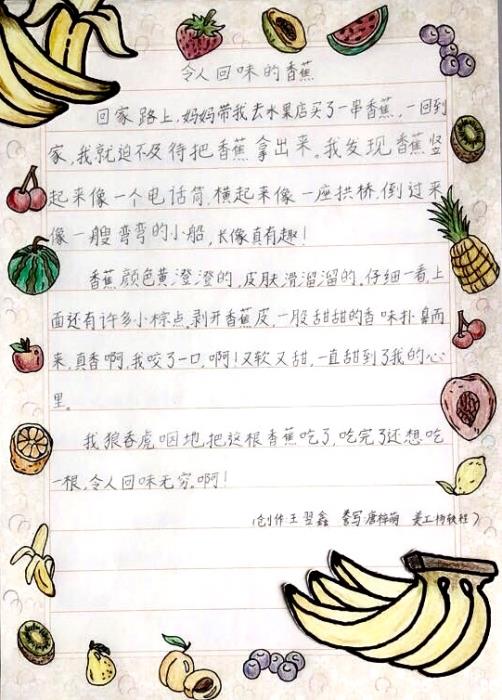 令人回味的香蕉
回家路上,妈妈带我去水果店买了一串香蕉,一回到
家,我就迫不及待把香蕉拿出来。我发现香蕉竖
起来像一个电话筒,横起来像一座拱桥,倒过来
像一艘弯弯的小船,长像真有趣!
香蕉颜色黄澄澄的,皮肤滑溜溜的,仔细一看上
面还有许多小棕点,剥开香蕉皮,一股甜甜的香味扑鼻而
来,真香啊,我咬了一口,啊!又软又甜,一直甜到了我的心
里。
我狼吞虎咽地把这根香蕉吃了,吃完了还想吃
一根,令人回味无穷啊!
(创作王翌鑫 誊写唐梓萌 美工杨轶程)